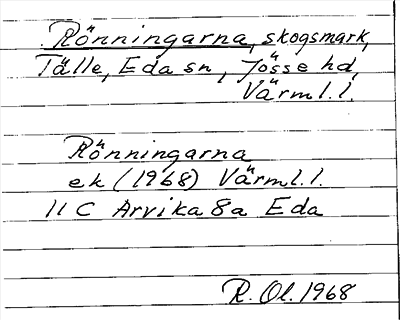 Rönningarna, skogsmark,
Tälle, Eda sn, Jösse hd,
Värml. l.
Rönningarna
ek (1968) Värml. l.
11 C Arvika 8a Eda
R. Ol. 1968